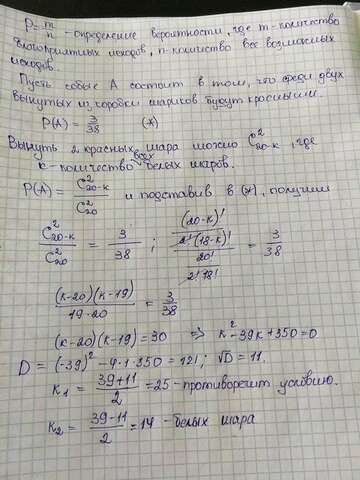 P = m/n - определение вероятности, где m - количество
благоприятных исходов, n - количество всех возможных
исходов.
Пусть событие A состоит в том, что среди двух
вынутых из коробки шариков будут красными.
P(A) = 3/38 (*)
Вынуть 2 красных шара можно C²₂₀₋ₖ, где
к - количество всех белых шаров.
P(A) = C²₂₀₋ₖ / C²₂₀ и подставив в (*), получим
C²₂₀₋ₖ / C²₂₀ = 3/38 ; ((20-к)! / 2!(18-к)!) / (20! / 2!18!) = 3/38
(к-20)(к-19) / 19·20 = 3/38
(к-20)(к-19) = 30 ⇒ к² - 39к + 350 = 0
D = (-39)² - 4·1·350 = 121; √D = 11.
к₁ = (39+11)/2 = 25 - противоречит условию.
к₂ = (39-11)/2 = 14 - белых шара